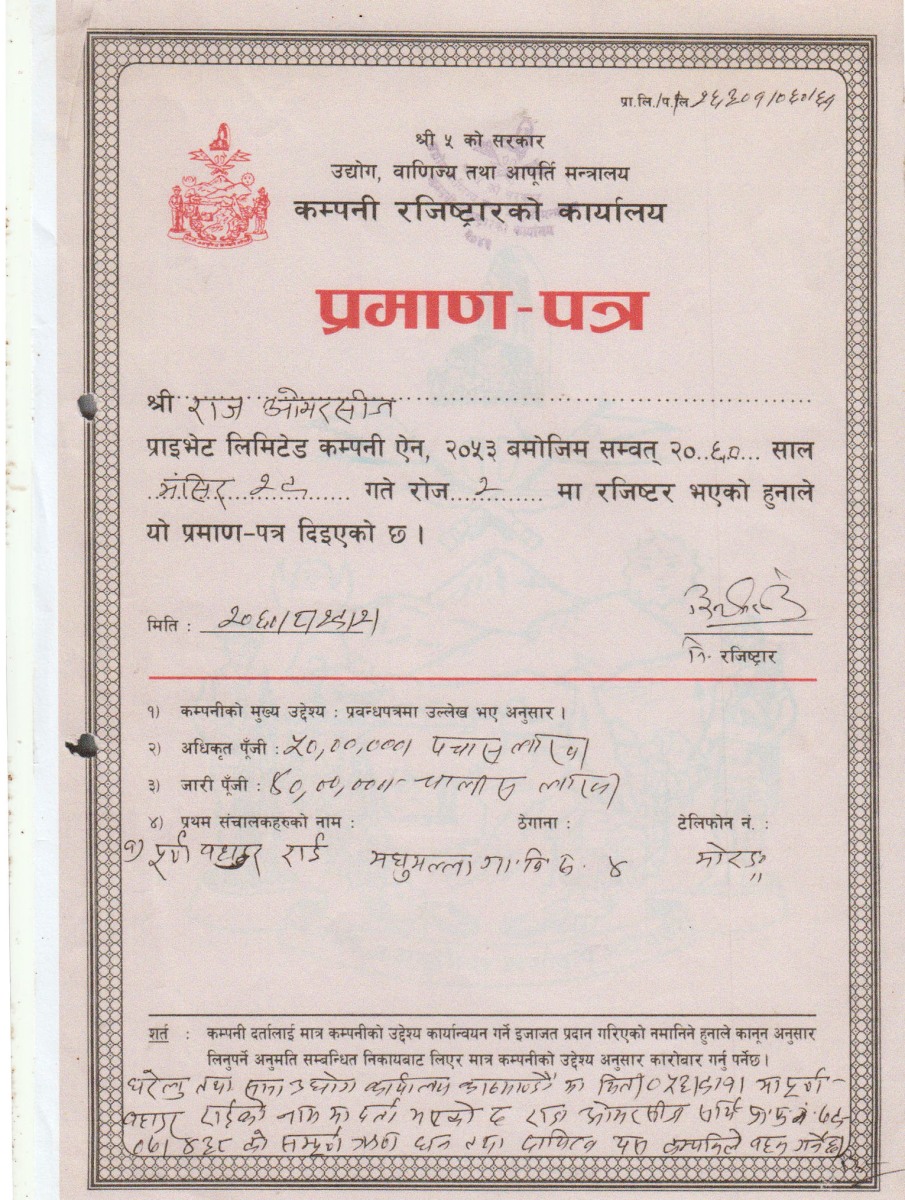 प्रा.लि./प.लि २६३०१/०६०/६१
श्री ५ को सरकार
उद्योग, वाणिज्य तथा आपूर्ति मन्त्रालय
कम्पनी रजिष्ट्रारको कार्यालय
प्रमाण-पत्र
श्री राज ओभरसीज
प्राइभेट लिमिटेड कम्पनी ऐन, २०५३ बमोजिम सम्वत् २०..६०... साल
मंसिर गते रोज..२ मा रजिष्टर भएको हुनाले
यो प्रमाण-पत्र दिइएको छ।
मिति :
रजिष्ट्रार
१) कम्पनीको मुख्य उद्देश्य : प्रवन्धपत्रमा उल्लेख भए अनुसार।
२) अधिकृत पूँजी : ५०,००,०००। पचास लाख
३) जारी पूँजी : ४०,००,०००। चालीस लाख
४) प्रथम संचालकहरुको नाम : ठेगाना : टेलिफोन नं. :
१) पूर्ण बहादुर राई मधुमल्ला गा.वि.स. ४ मोरङ
शर्त : कम्पनी दर्तालाई मात्र कम्पनीको उद्देश्य कार्यान्वयन गर्ने इजाजत प्रदान गरिएको नमानिने हुनाले कानून अनुसार
लिनुपर्ने अनुमति सम्बन्धित निकायबाट लिएर मात्र कम्पनीको उद्देश्य अनुसार कारोबार गर्नु पर्नेछ।
घरेलु तथा साना उद्योग कार्यालय काठमाण्डौ मा मिति मा पूर्ण
बहादुर राईको नाम मा दर्ता भएको राज ओभरसीज
को सम्पूर्ण ऋण धन तथा दायित्व यस कम्पनिले वहन गर्नेछ।